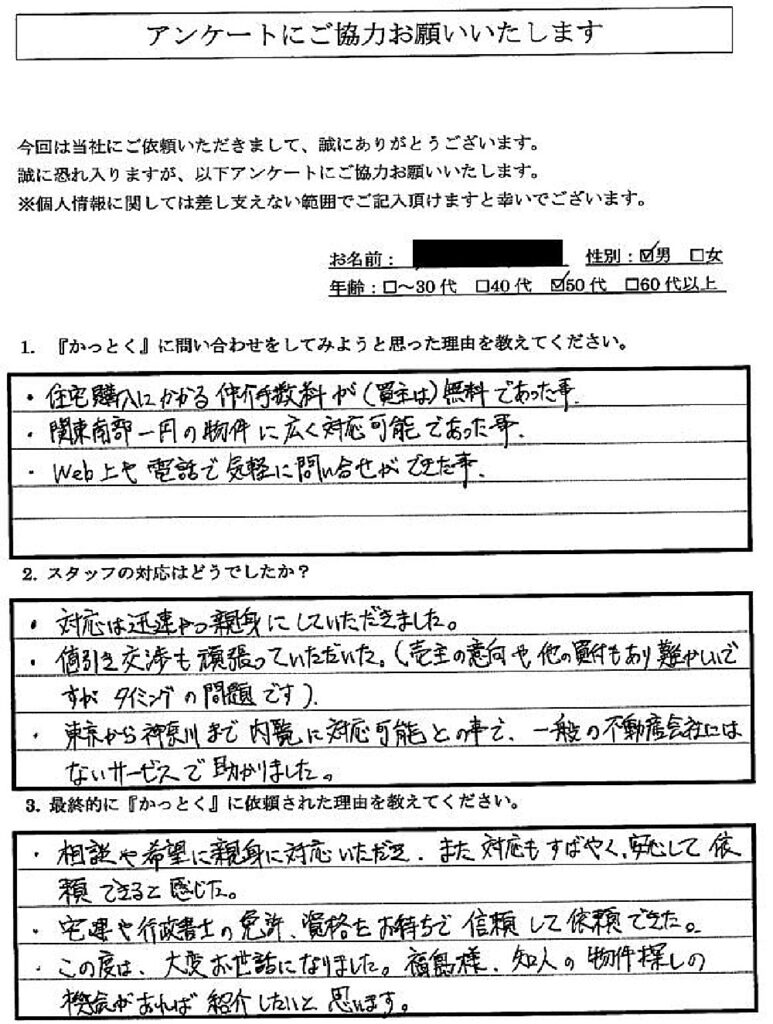 アンケートにご協力お願いいたします
今回は当社にご依頼いただきまして、誠にありがとうございます。
誠に恐れ入りますが、以下アンケートにご協力お願いいたします。
※個人情報に関しては差し支えない範囲でご記入頂けますと幸いでございます。
お名前： 性別：☑男 □女
年齢：□～30代 □40代 ☑50代 □60代以上
1. 『かっとく』に問い合わせをしてみようと思った理由を教えてください。
・住宅購入にかかる仲介手数料が(買主は)無料であった事.
・関東南部一円の物件に広く対応可能であった事.
・Web上や電話で気軽に問い合せができた事.
2. スタッフの対応はどうでしたか？
・対応は迅速かつ親身にしていただきました。
・値引き交渉も頑張っていただいた。(売主の意向や他の買付もあり難かしいで
すが タイミングの問題です).
・東京から神奈川まで内覧に対応可能との事で、一般の不動産会社には
ないサービスで助かりました。
3. 最終的に『かっとく』に依頼された理由を教えてください。
・相談や希望に親身に対応いただき、また対応もすばやく、安心して依
頼できると感じた。
・宅建や行政書士の免許、資格をお持ちで信頼して依頼できた。
・この度は、大変お世話になりました。福島様、知人の物件探しの
機会があれば紹介したいと思います。